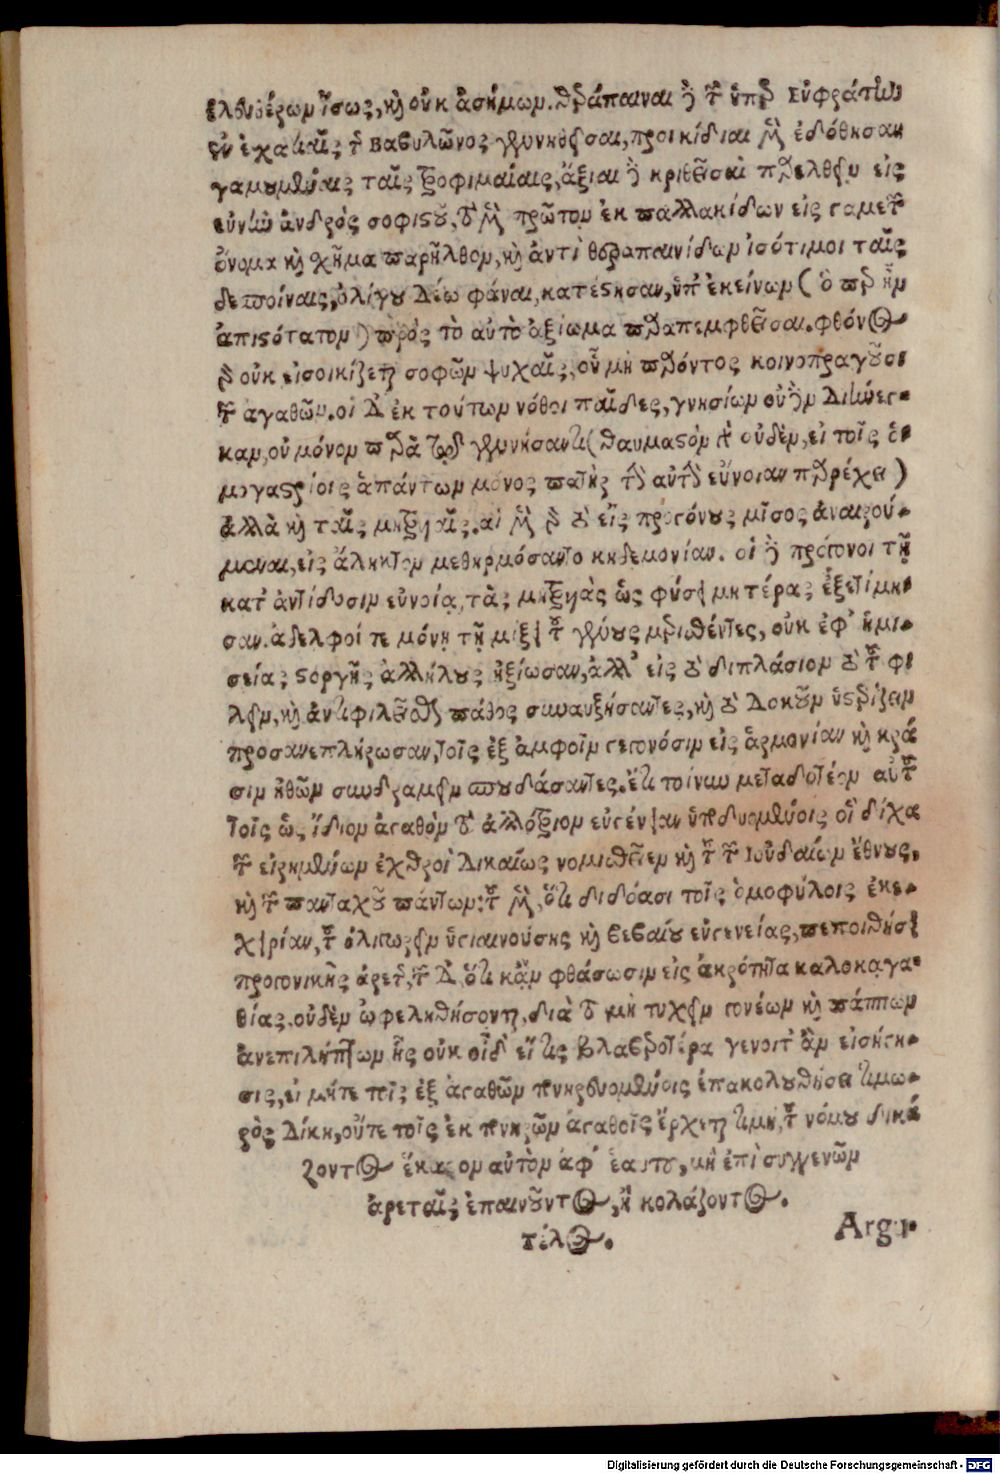 ἐλευθέρων ἴσως, καὶ οὐκ ἀσήμων. θεράπαιναι δὲ τῶν ὑπὲρ Εὐφράτην
ἐν ἐσχατιαῖς τῆς Βαβυλῶνος γεννηθεῖσαι, προικίδιαι μὲν ἐδόθησαν
γαμουμέναις ταῖς τροφίμαις, ἄξιαι δὲ κριθεῖσαι παρελθεῖν εἰς
εὐνὴν ἀνδρὸς σοφοῦ, τὸ μὲν πρῶτον ἐκ παλλακίδων εἰς γαμετῶν
ὄνομα καὶ σχῆμα παρῆλθον, καὶ ἀντὶ θεραπαινίδων ἰσότιμοι ταῖς
δεσποίναις, ὀλίγου δέω φάναι, κατέστησαν, ὑπ' ἐκείνων (ὃ παρ ἦν
ἀπιστότατον) πρὸς τὸ αὐτὸ ἀξίωμα παραπεμφθεῖσαι. φθόνος
γὰρ οὐκ εἰσοικίζεται σοφῶν ψυχαῖς, οὗ μὴ παρόντος κοινοπραγοῦσι
τῶν ἀγαθῶν. οἱ δ' ἐκ τούτων νόθοι παῖδες, γνησίων οὐδὲν διήνεγ-
καν, οὐ μόνον παρὰ τῷ γεννήσαντι (θαυμαστὸν γὰρ οὐδὲν, εἰ τοῖς ὁ-
μογαστρίοις ἁπάντων μόνος πατὴρ τὴν αὐτὴν εὔνοιαν παρέχει)
ἀλλὰ καὶ ταῖς μητρυιαῖς. αἱ μὲν γὰρ τὸ εἰς προγόνους μῖσος ἀναιρού-
μεναι, εἰς ἄληκτον μεθηρμόσαντο κηδεμονίαν. οἱ δὲ πρόγονοι τῇ
κατ' ἀντίδοσιν εὐνοίᾳ, τὰς μητρυιὰς ὡς φύσει μητέρας ἐξετίμη-
σαν. ἀδελφοί τε μόνῃ τῇ μίξει τοῦ γένους μερισθέντες, οὐκ ἐφ' ἡμι-
σείας στοργῆς ἀλλήλους ἠξίωσαν, ἀλλ' εἰς τὸ διπλάσιον τὸ τοῦ φι-
λεῖν, καὶ ἀντιφιλεῖσθαι πάθος συναυξήσαντες, καὶ τὸ δοκοῦν ὑστερίζειν
προσανεπλήρωσαν, τοῖς ἐξ ἀμφοῖν γεγονόσιν εἰς ἁρμονίαν καὶ κρᾶ
σιν ἠθῶν συνδραμεῖν σπουδάσαντες. ἔτι τοίνυν μεταδοτέον αὐτῶν
τοῖς ὡς ἴδιον ἀγαθὸν τὸ ἀλλότριον εὐγένειαν ὑποδυομένοις οἳ δίχα
τῶν εἰρημένων ἐχθροὶ δικαίως νομισθεῖεν καὶ τοῦ τῶν Ἰουδαίων ἔθνους,
καὶ τῶν πανταχοῦ πάντων: τοῦ μὲν, ὅτι διδόασι τοῖς ὁμοφύλοις ἐκε-
χειρίαν, τοῦ ὀλιγωρεῖν ὑγιαινούσης καὶ βεβαίου εὐγενείας, πεποιθήσει
προγονικῆς ἀρετῆς, τῶν δ', ὅτι κἂν φθάσωσιν εἰς ἀκρότητα καλοκαγα-
θίας, οὐδὲν ὠφεληθήσονται, διὰ τὸ μὴ τυχεῖν γονέων καὶ πάππων
ἀνεπιλήπτων, ἧς οὐκ οἶδ' εἴ τις βλαβερωτέρα γένοιτ' ἂν εἰσήγη-
σις, εἰ μήτε τοῖς ἐξ ἀγαθῶν πονηρευομένοις ἐπακολουθήσει τιμω-
ρὸς δίκη, οὔτε τοῖς ἐκ πονηρῶν ἀγαθοῖς ἔρχεται τιμή, τοῦ νόμου δικά
ζοντος ἕκαστον αὐτὸν ἀφ' ἑαυτοῦ, μὴ ἐπὶ συγγενῶν
ἀρεταῖς ἐπαινοῦντος, ἢ κολάζοντος.
τέλος.
Argu-
Digitalisierung gefördert durch die Deutsche Forschungsgemeinschaft - DFG